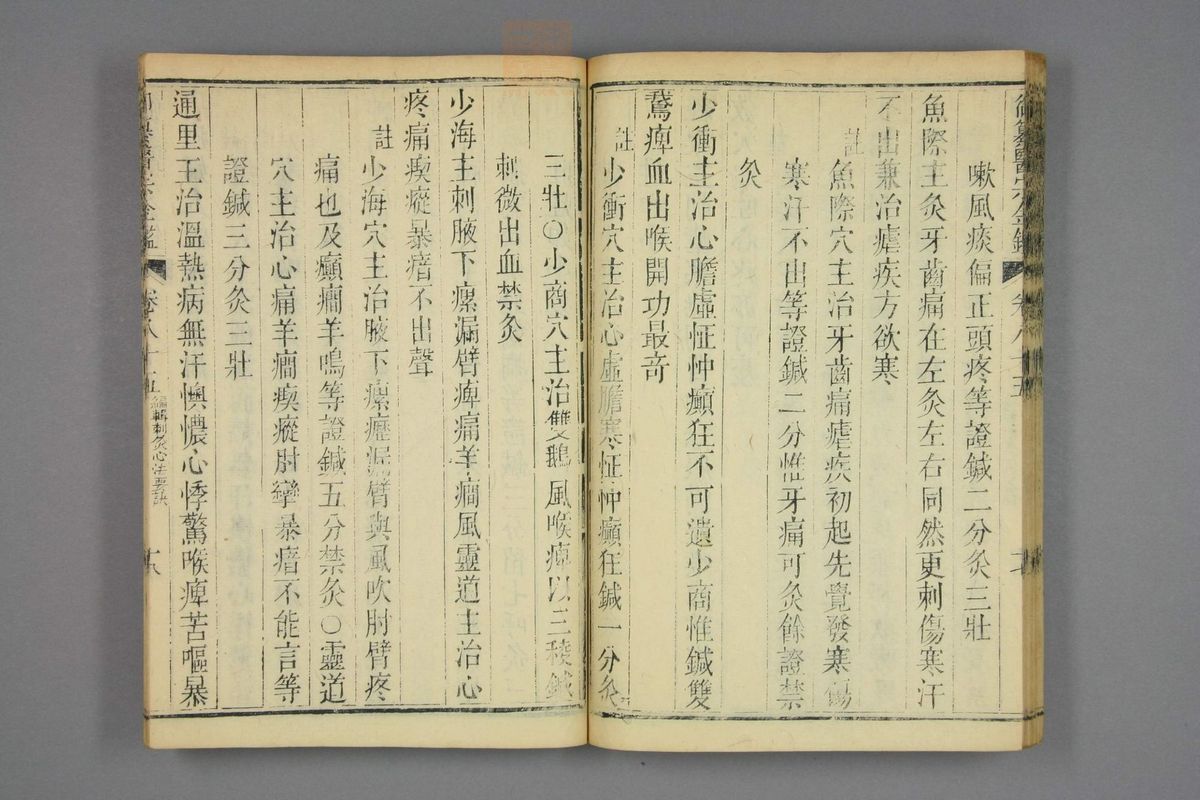 御纂醫宗金鑑 卷八十五
嗽風痰偏正頭疼等證鍼二分灸三壯
魚際主灸牙齒痛在左灸左右同然更刺傷寒汗
不出兼治瘧疾方欲寒
註魚際穴主治牙齒痛瘧疾初起先覺發寒傷
寒汗不出等證鍼二分惟牙痛可灸餘證禁
灸
少衝主治心膽虛怔忡癲狂不可遺少商惟鍼雙
鵞痺血出喉開功最奇
註少衝穴主治心虛膽寒怔忡癲狂鍼一分灸
三壯○少商穴主治雙鵝風喉痺以三稜鍼
刺微出血禁灸
少海主刺腋下瘰漏臂痺痛羊癎風靈道主治心
疼痛瘈瘲暴瘖不出聲
註少海穴主治腋下瘰癧漏臂與風吹肘臂疼
痛也及癲癎羊鳴等證鍼五分禁灸○靈道
穴主治心痛羊癎瘈瘲肘攣暴瘖不能言等
證鍼三分灸三壯
通里主治溫熱病無汗懊憹心悸驚喉痺苦嘔暴
卷八十五 編輯刺灸心法要訣 十八